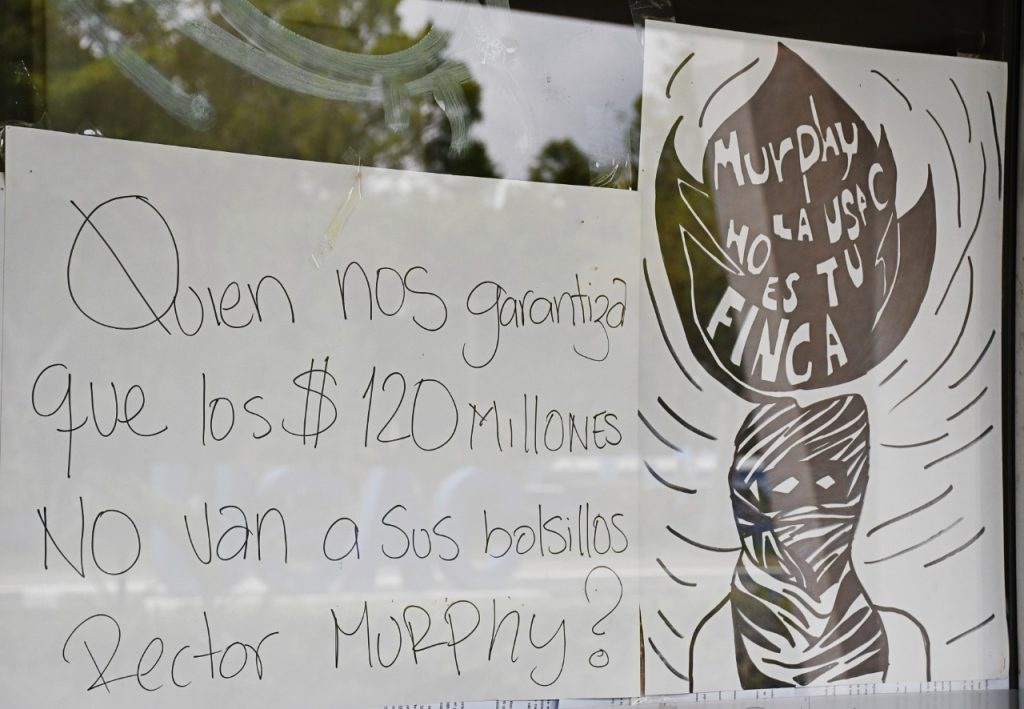 Quien nos garantiza
que los $120 Millones
NO van a sus bolsillos
Rector Murphy?
Murphy
LA USAC
NO
ES TU
FINCA